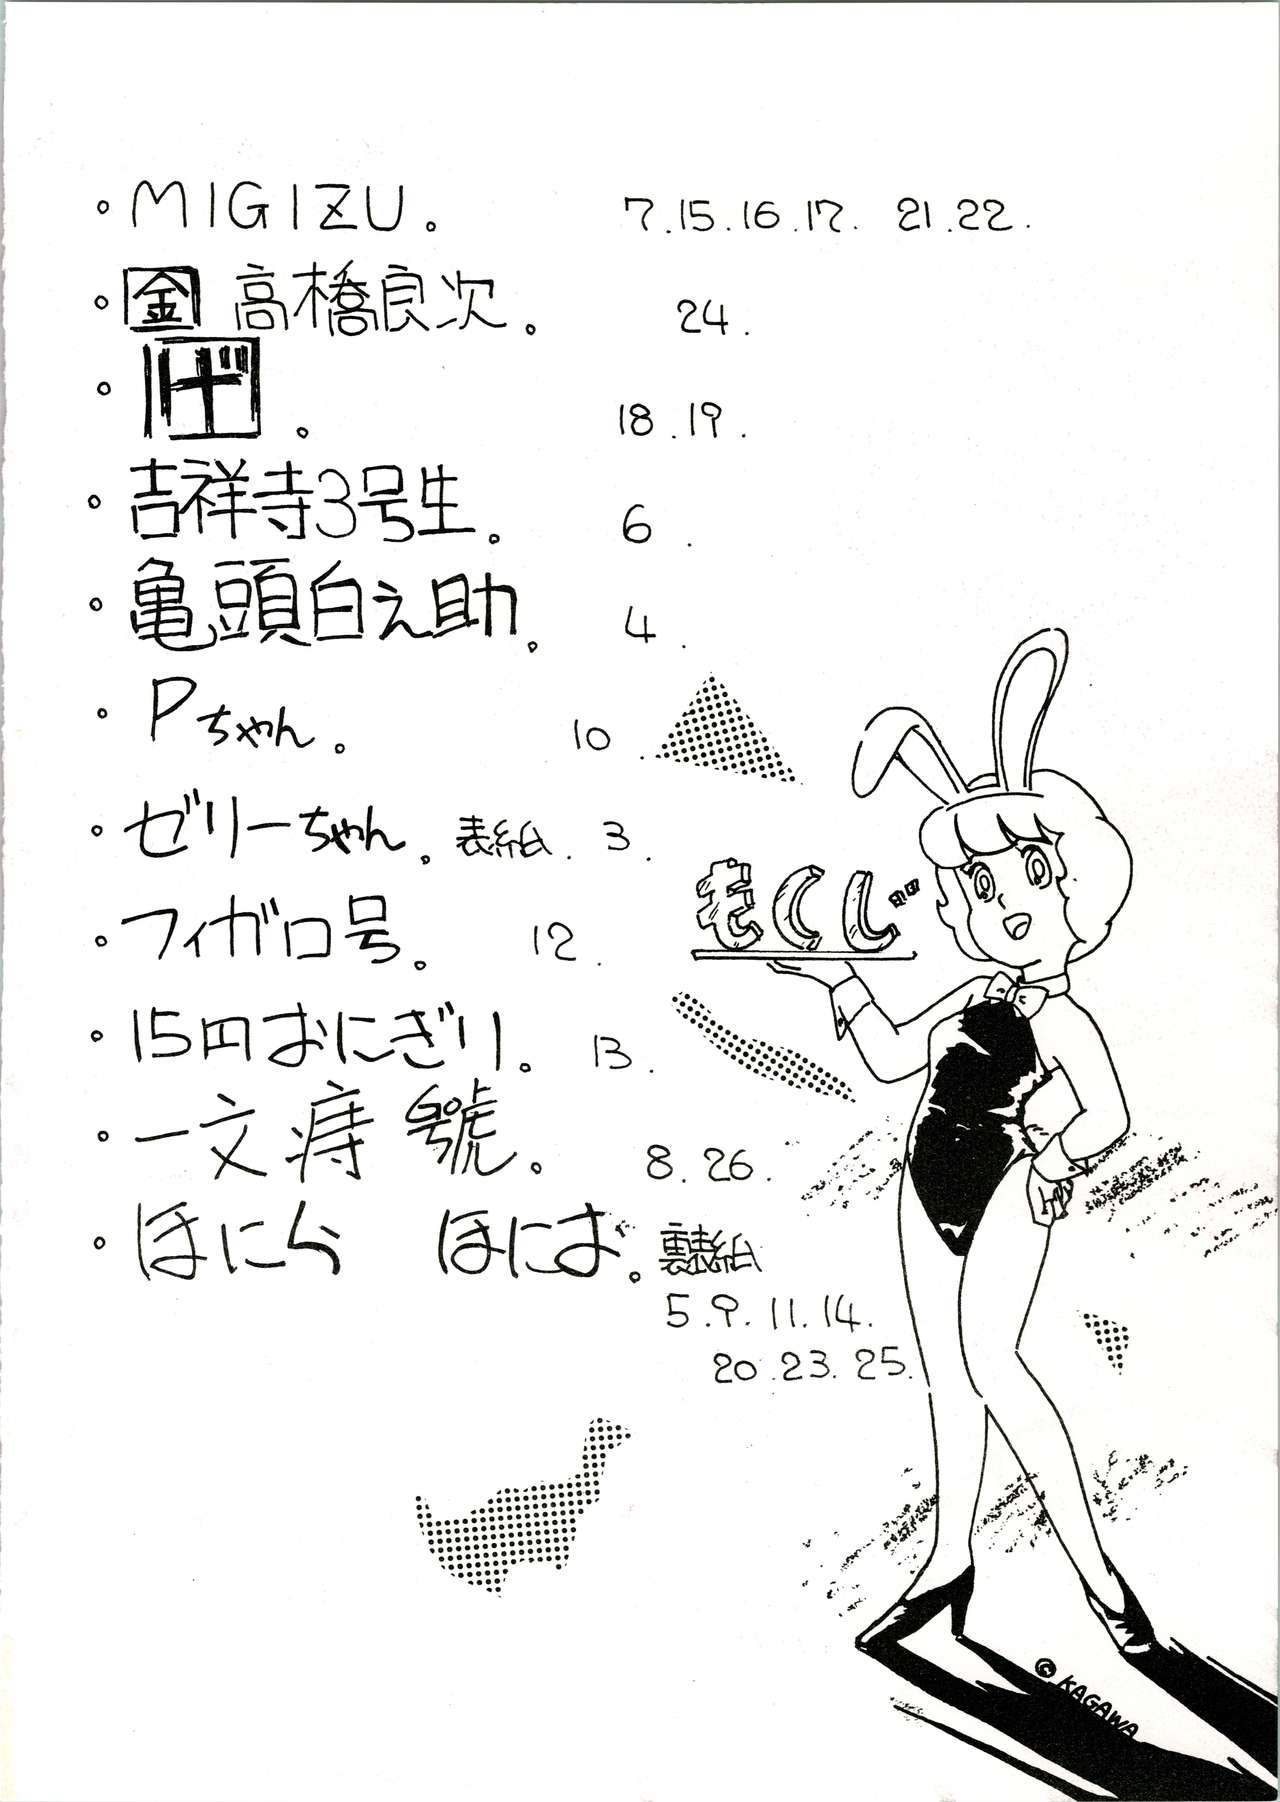 ・MIGIZU。 7.15.16.17. 21.22.
・金 高橋良次。 24.
・ 18.19.
・吉祥寺3号生。 6.
・亀頭白之助。 4.
・Pちゃん。 10.
・ゼリーちゃん。表紙. 3.
もくじ
・フィガロ号。 12.
・15円おにぎり。 13.
・一文痔 GO!号虎。 8.26.
・ほにら ほにお。裏表紙
5.9.11.14.
20.23.25.
© KAGAWA